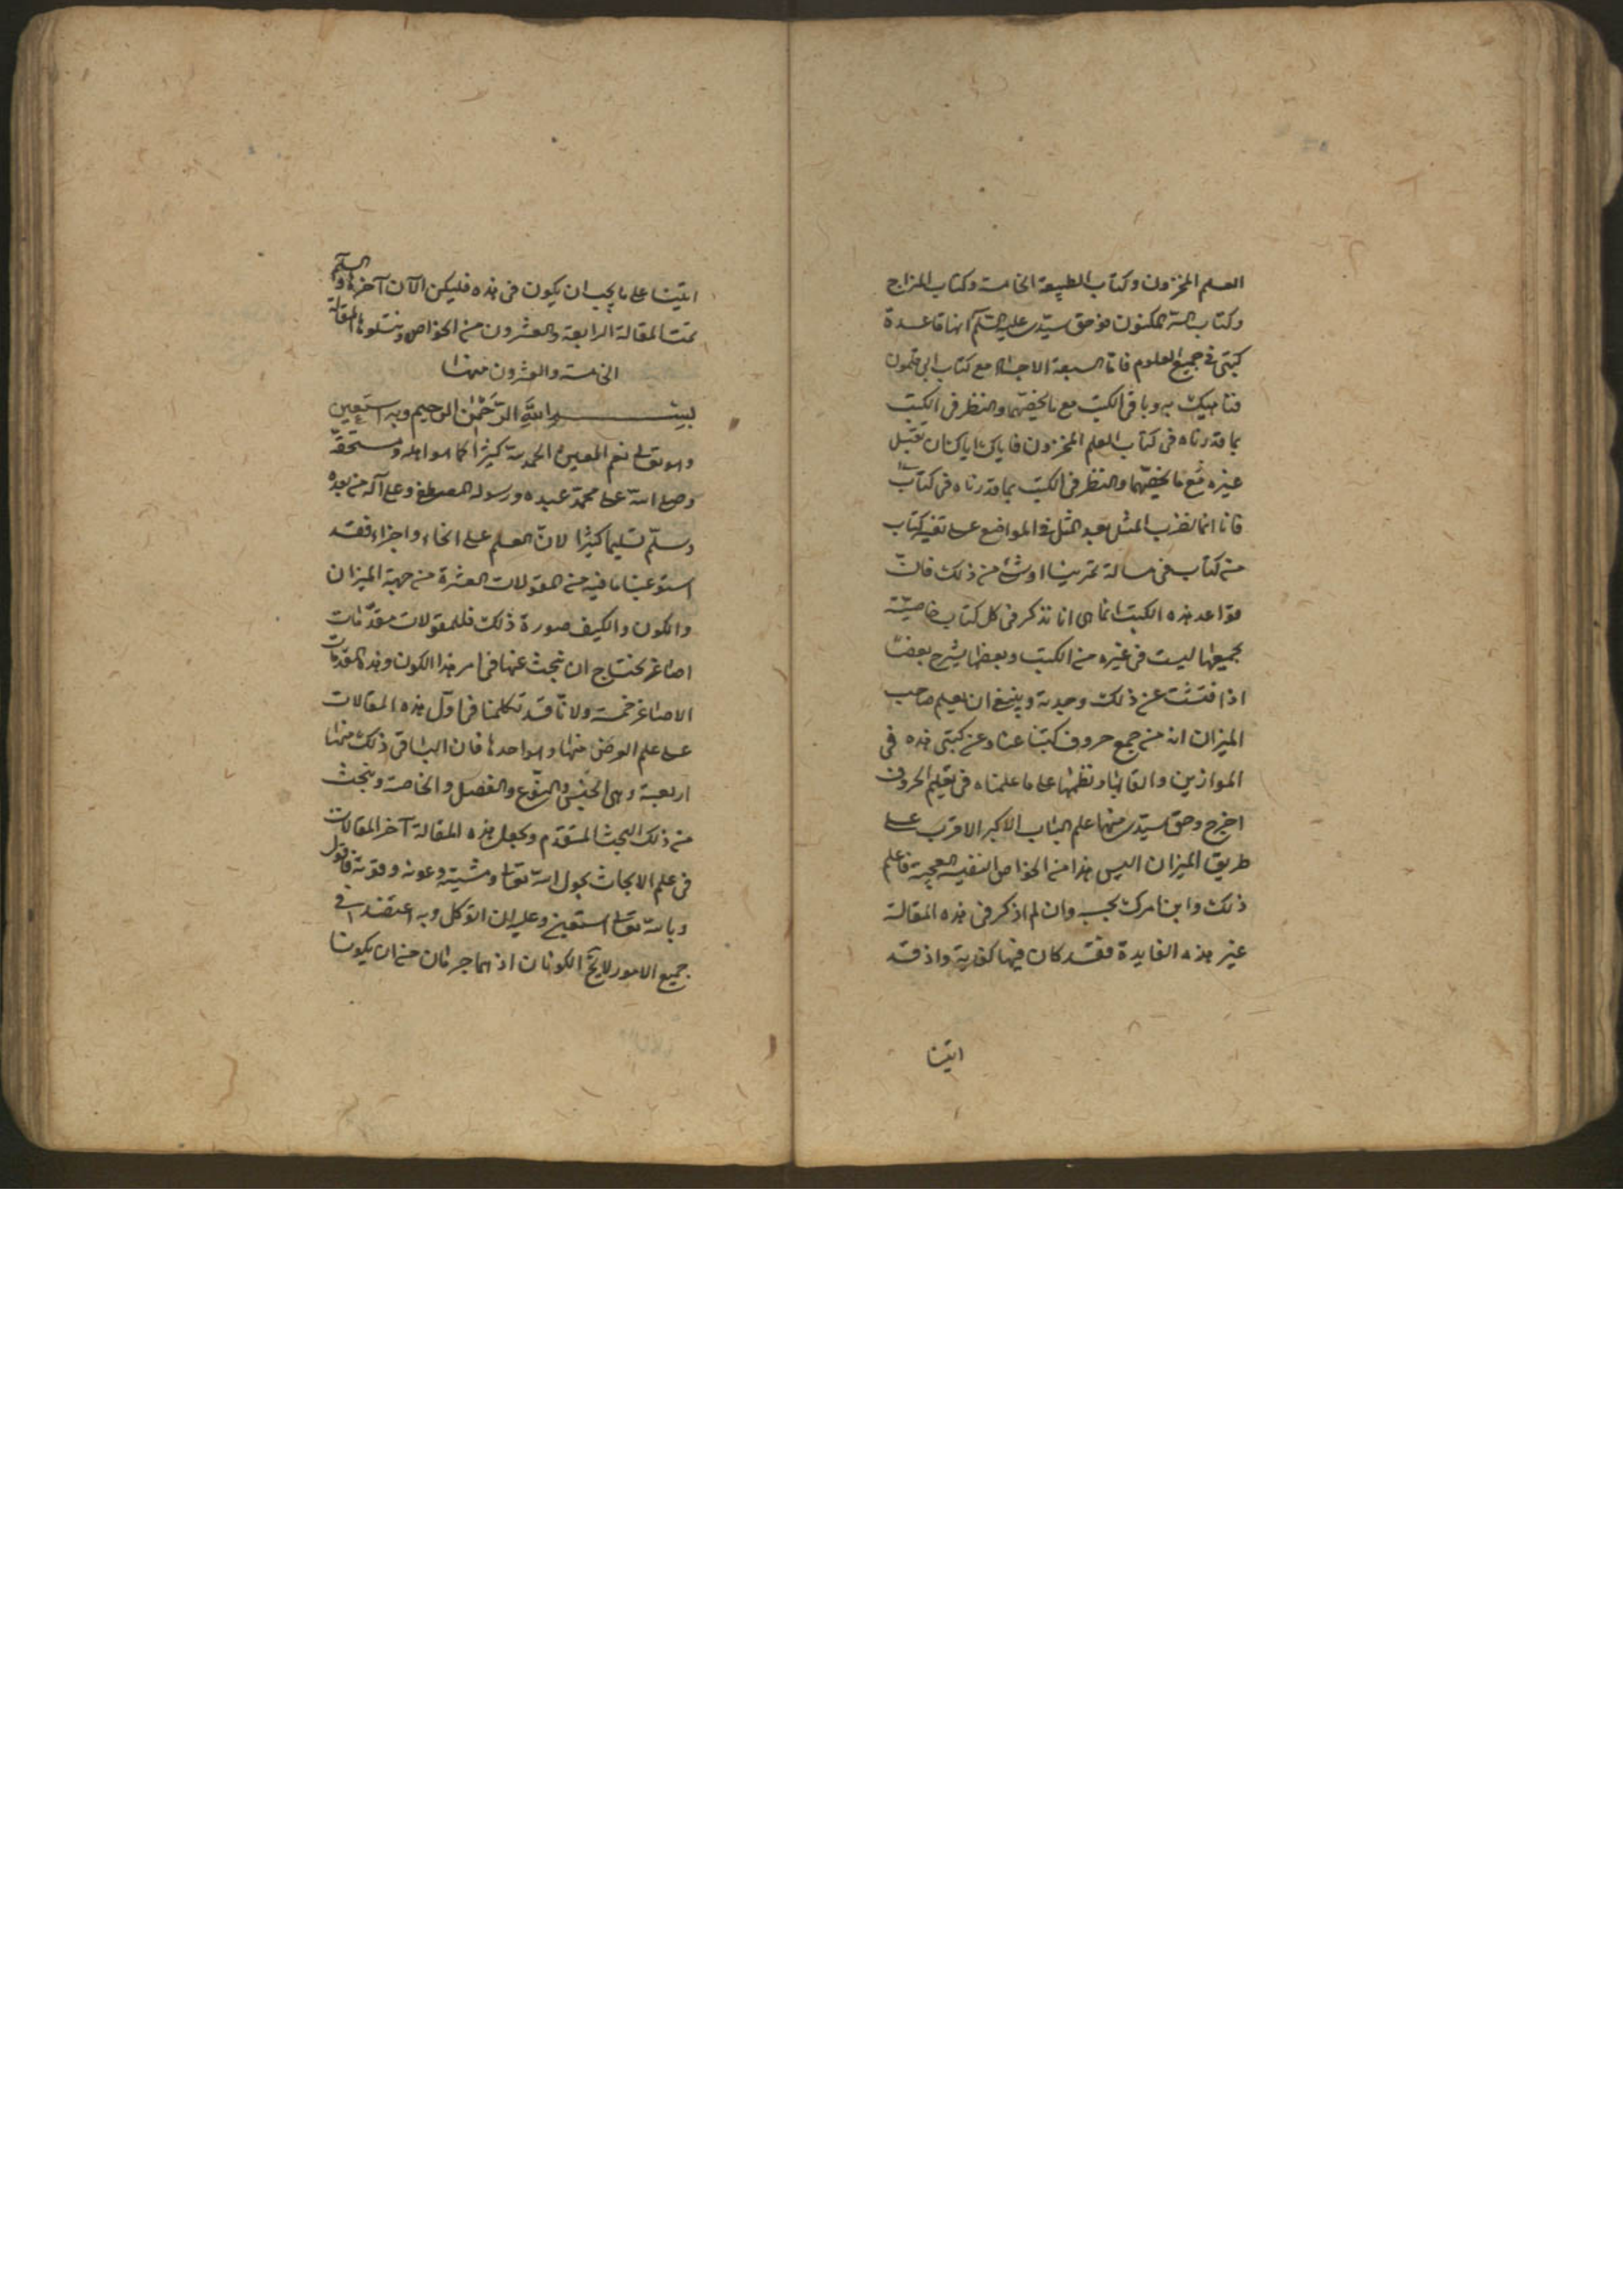 العلم المخزون وكتاب الطبيعة الخامسة وكتاب المزاج
وكتاب السر المكنون فوحق سيدى عليه السلم انها قاعدة
كتبى فى جميع العلوم فاما السبعة الاجساد مع كتاب ابى قلمون
فناهيك به وباقى الكتب مع ما يخصها والنظر فى الكتب
بما قدرناه فى كتاب العلم المخزون فاياك اياك ان تقبل
غيره مع ما يخصها والنظر فى الكتب بما قدرناه فى كتاب
فانا انما نضرب المثل بعد المثل فى المواضع على تفسير كتاب
من كتاب فى مسالة تمرينا او شئ من ذلك فان
قواعد هذه الكتب انما هى انا نذكر فى كل كتاب خاصية
بجميعها ليست فى غيره من الكتب وبعضها يشرح بعضا
اذا فتشت عن ذلك وجدته وينبغى ان يعلم صاحب
الميزان انه من جمع حروف كتبنا عنا وعن كتبى هذه فى
الموازين والقابها ونظمها على ما علمناه فى تعليم الحروف
اخرج وحق سيدى منها علم الباب الاكبر الاقرب على
طريق الميزان اليس هذا من الخواص النفيسة العجيبة فاعلم
ذلك وابن امرك بحسبه وان لم اذكر فى هذه المقالة
غير هذه الفايدة فقد كان فيها كفاية واذ قد
اتينا
اتينا على ما يجب ان يكون فى هذه فليكن الآن آخرها والسلم
تمت المقالة الرابعة والعشرون من الخواص ويتلوها المقالة
الخامسة والعشرون منها
بسم الله الرحمن الرحيم وبه استعين
وهو تعالى نعم المعين الحمد لله كثيرا كما هو اهله ومستحقه
وصلى الله على محمد عبده ورسوله المصطفى وعلى آله من بعده
وسلم تسليما كثيرا لان العلم على انحاء واجزاء فقد
استوعبنا ما فيه من المقولات العشرة من جهة الميزان
والكون والكيف صورة ذلك فللمقولات مقدمات
اصاغر نحتاج ان نبحث عنها فى امر هذا الكون وهذه المقدمات
الاصاغر خمسة ولانا قد تكلمنا فى اول هذه المقالات
على علم العرض منها وهو احدها فان الباقى ذلك منها
اربعة وهى الجنس والنوع والفصل والخاصة ونبحث
من ذلك البحث المتقدم ونجعل هذه المقالة آخر المقالات
فى علم الابحاث بحول الله تعالى ومشيته وعونه وقوته فاقول
وبالله تعالى استعين وعليه اتوكل وبه اعتضد فى
جميع الامور لا يخ الكونان اذ هما جرمان من ان يكونا